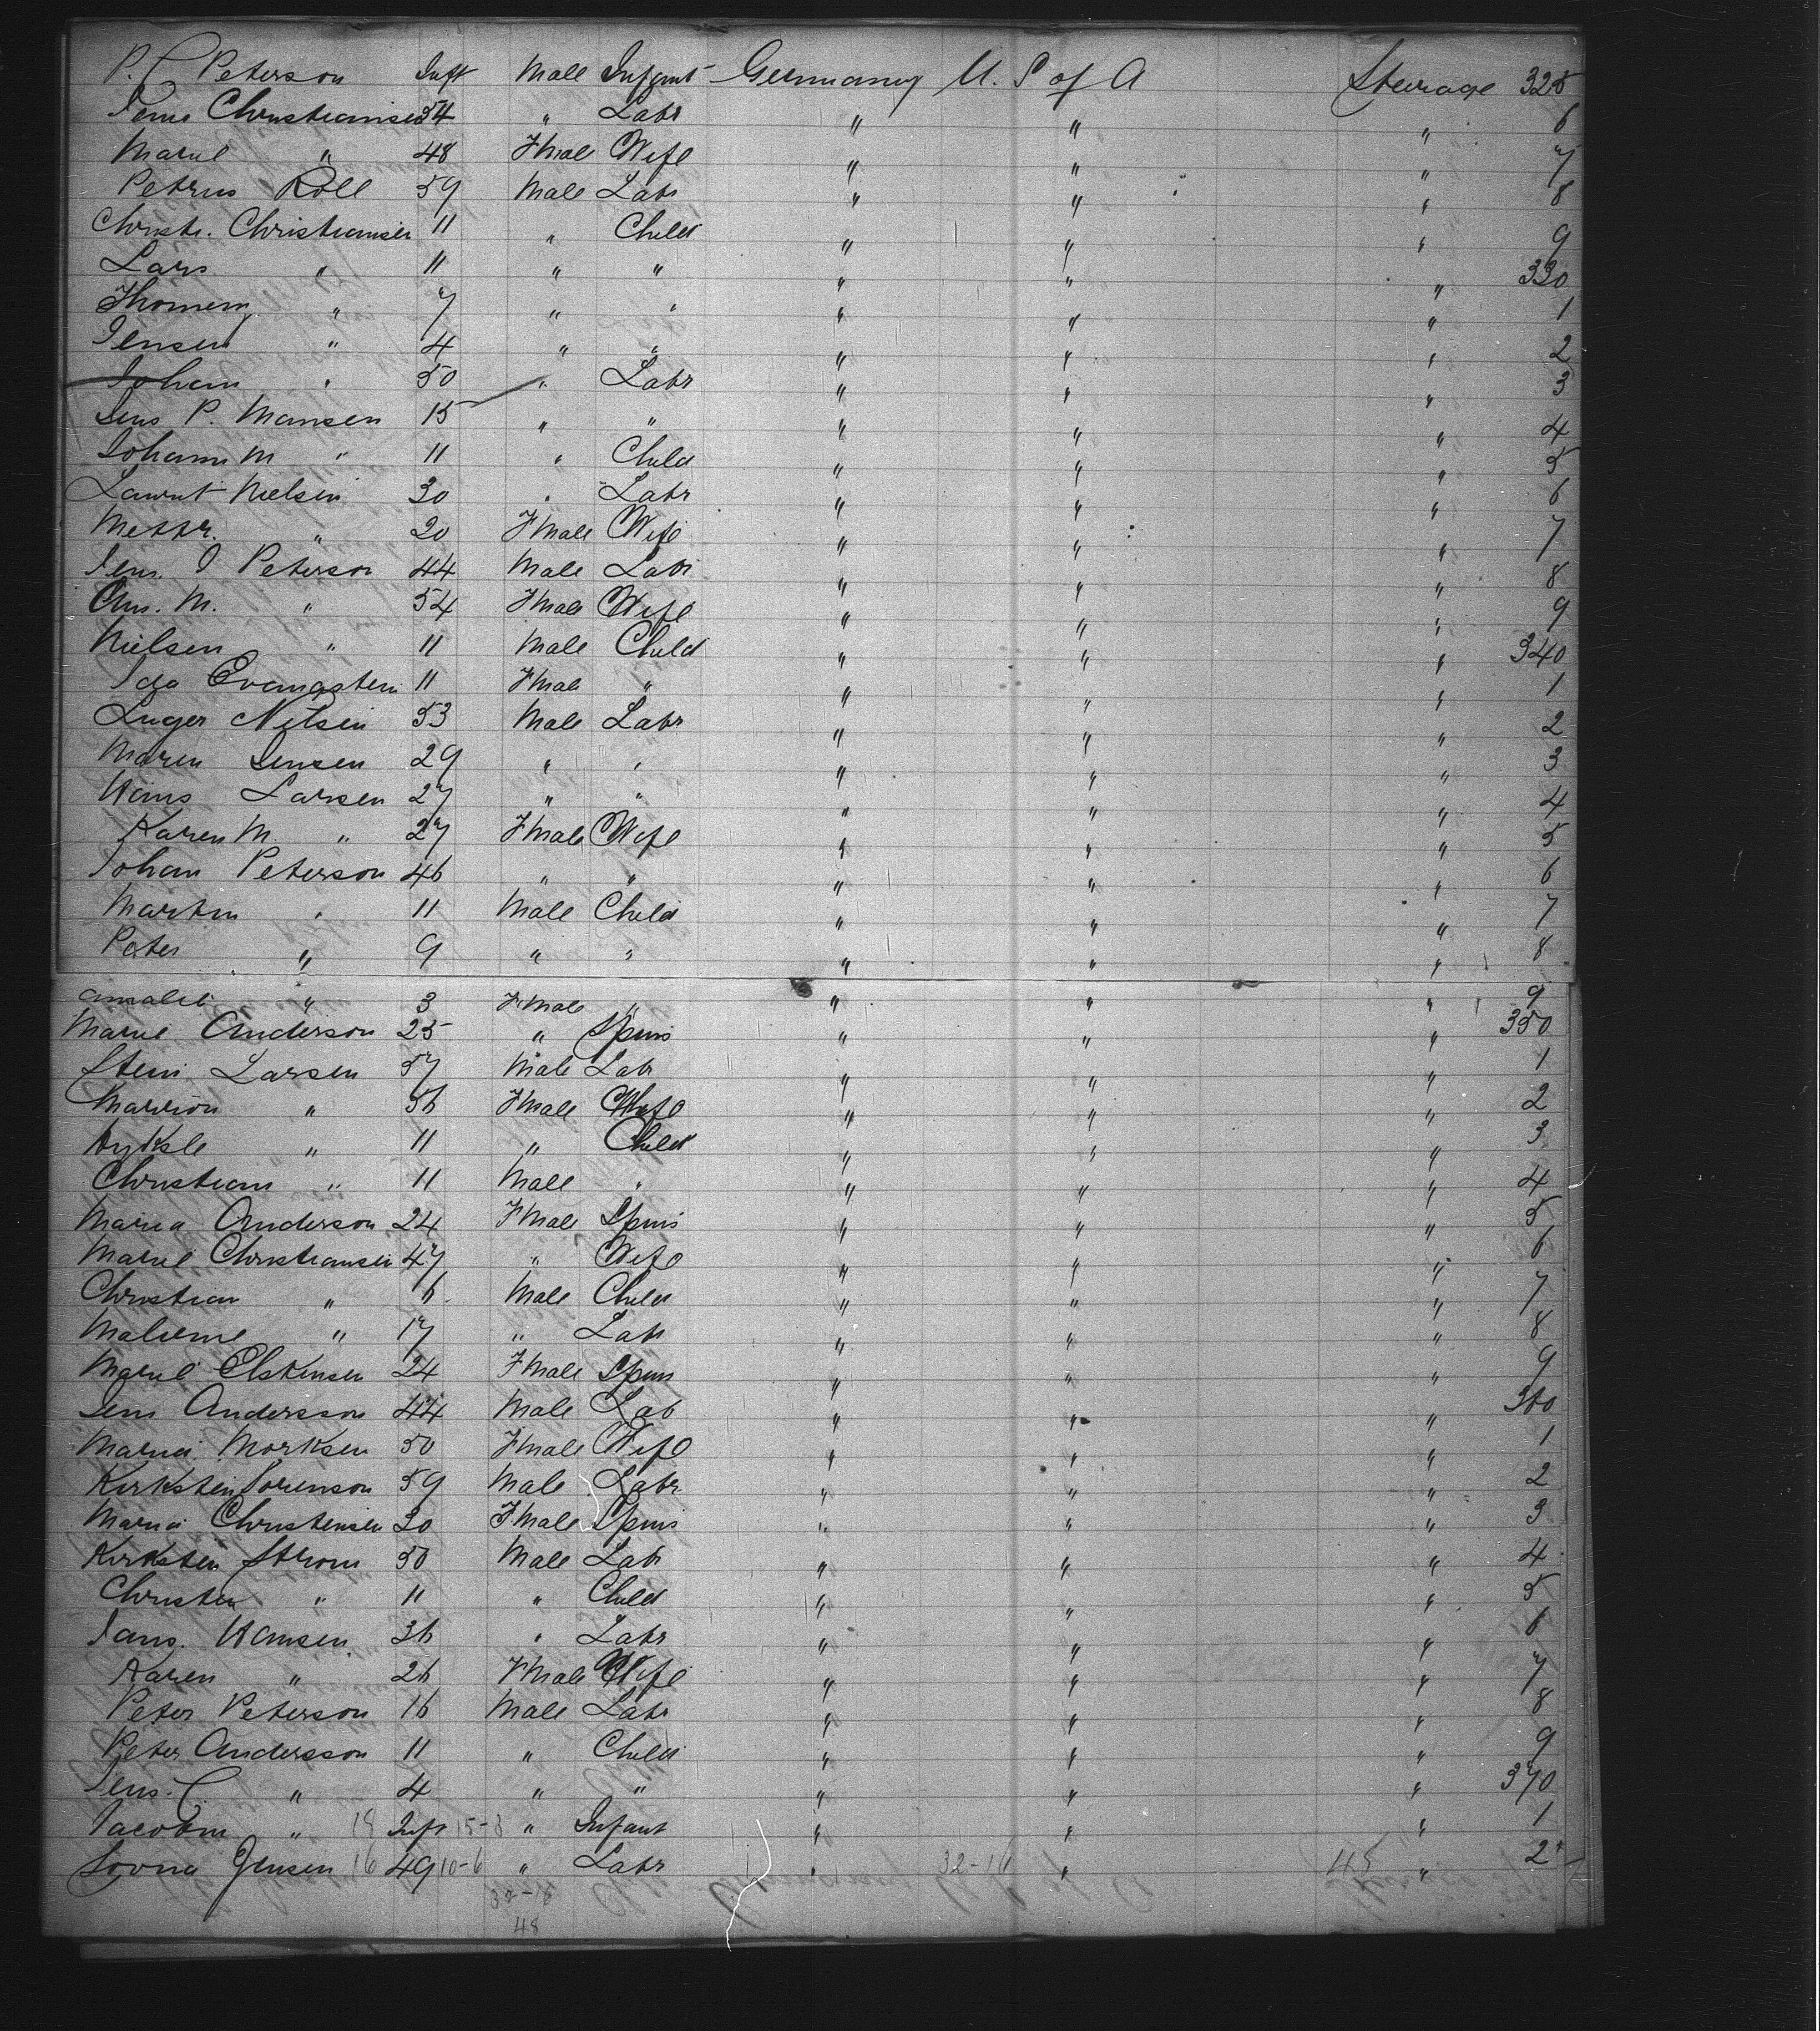 P. C Peterson Inft Male Infant Germany U. S of A Steerage 325
Jens Christiansen 34 " Labr " " " 6
Marie " 48 Fmal Wife " " " 7
Petrus Roll 59 Male Labr " " " 8
Christr. Christiansen 11 " Child " " " 9
Lars " 11 " " " " " 330
Thomesn " 7 " " " " " 1
Jensen " 4 " " " " " 2
Johan " 50 " Labr " " " 3
Jens P. Mansen 15 " " " " " 4
Johann M " 11 " Child " " " 5
Laurut Nielsen 30 " Labr " " " 6
Mettr. " 20 Fmale Wife " " " 7
Jens. J Peterson 44 Male Labr " " " 8
Chr. M. " 54 Fmale Wife " " " 9
Nielsen " 11 Male Child " " " 340
Ida 11 Fmal " " " " 1
Luger Nilsen 53 Male Labr " " " 2
Maren Jensen 29 " " " " " 3
Hans Larsen 27 " " " " " 4
Karen M. " 27 Fmale Wife " " " 5
Johan Peterson 46 " " " " " 6
Martin " 11 Male Child " " " 7
Peter " 9 " " " " " 8
Amalie " 3 Fmale " " " " 9
Marie Anderson 25 " Spins " " " 350
Steni Larsen 57 Male Labr " " " 1
Marrion " 56 Fmale Wife " " " 2
" 11 " Child " " " 3
Christian " 11 Male " " " " 4
Maria Anderson 24 Fmale Spins " " " 5
Marie Christiansen 47 " Wife " " " 6
Christian " 6 Male Child " " " 7
" 17 " Labr " " " 8
Marie Elskensen 24 Fmale Spins " " " 9
Jens Andersson 44 Male Lab " " " 360
Maria Morksen 50 Fmale Wife " " " 1
Kirksten Sorenson 59 Male Labr " " " 2
Maria Christensen 30 Fmale Spins " " " 3
Kirksten Strom 50 Male Labr " " " 4
Christen " 11 " Child " " " 5
Jans. Hansen 36 " Labr " " " 6
Karen " 26 Fmale Wife " " " 7
Peter Peterson 16 Male Labr " " " 8
Peter Andersson 11 " Child " " " 9
Jens. C. " 4 " " " " " 370
Jacobin " 19 Inft 15-8 " Infant " " " 1
Sovna Jensen 16 49 10-6 " Labr " 32-16 " 48 " 2
32-16
48